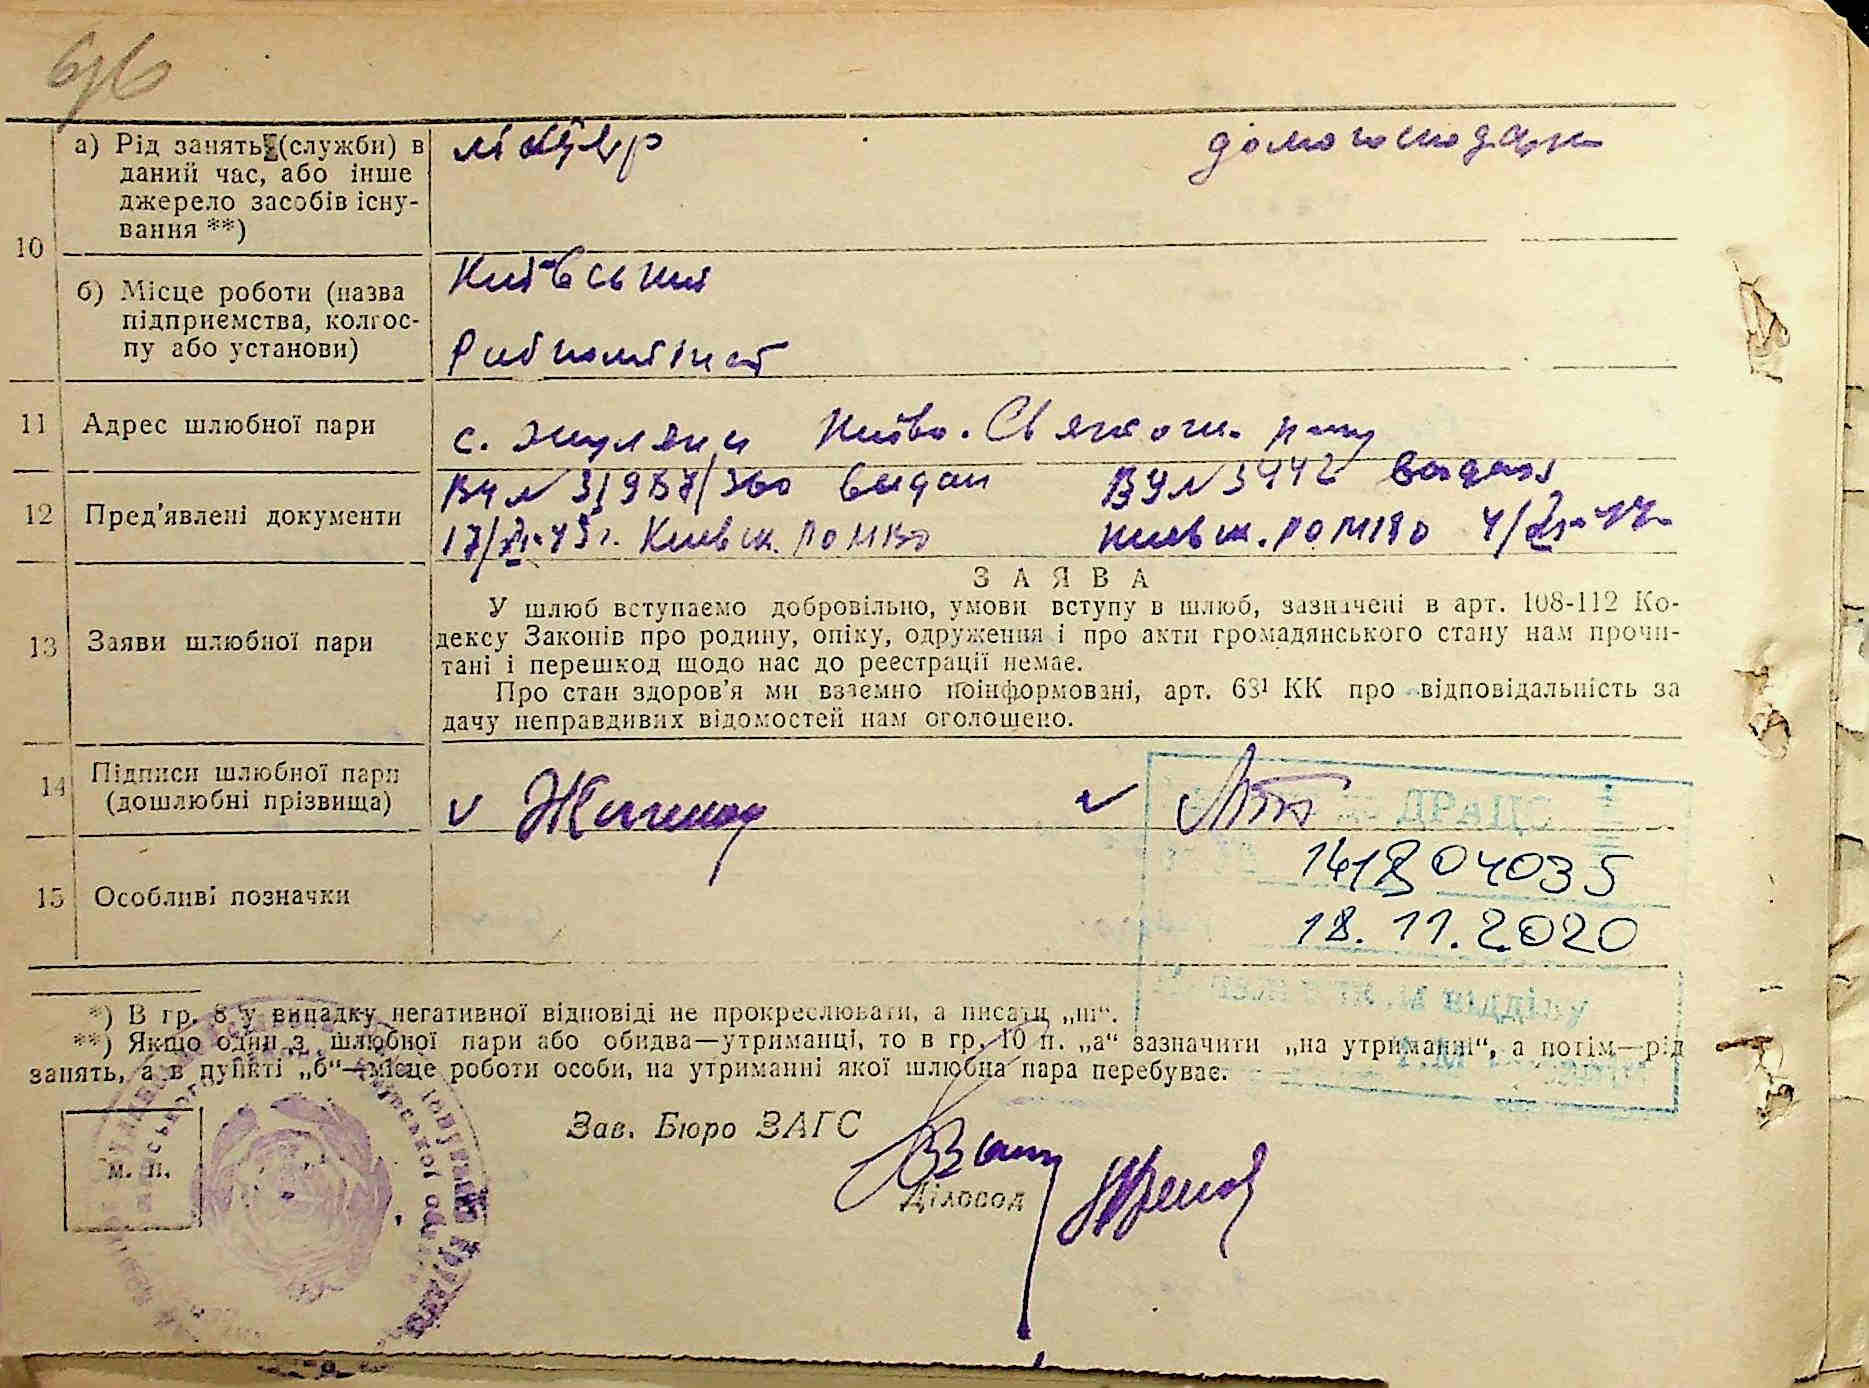 10
а) Рід занять (служби) в
даний час, або інше
джерело засобів існу-
вання **)
домогосподарк
б) Місце роботи (назва
підприємства, колгос-
пу або установи)
Київський
Рибкомбінат
11 Адрес шлюбної пари
с. Жуляни Києво. Святош. р-ну
12 Пред'явлені документи
выдан
Киевск. РОМВД
Киевск. РОМВД
13 Заяви шлюбної пари
ЗАЯВА
У шлюб вступаємо добровільно, умови вступу в шлюб, зазначені в арт. 108-112 Ко-
дексу Законів про родину, опіку, одруження і про акти громадянського стану нам прочи-
тані і перешкод щодо нас до реєстрації немає.
Про стан здоров'я ми взаємно поінформовані, арт. 68¹ КК про відповідальність за
дачу неправдивих відомостей нам оголошено.
14 Підписи шлюбної пари
(дошлюбні прізвища)
ДРАЦС
14804035
18.11.2020
відділу
15 Особливі позначки
*) В гр. 8 у випадку негативної відповіді не прокреслювати, а писати „ні“.
**) Якщо один з шлюбної пари або обидва—утриманці, то в гр. 10 п. „а“ зазначити „на утриманні“, а потім—рід
занять, а в пункті „б“—місце роботи особи, на утриманні якої шлюбна пара перебуває.
м. п.
Зав. Бюро ЗАГС
Діловод